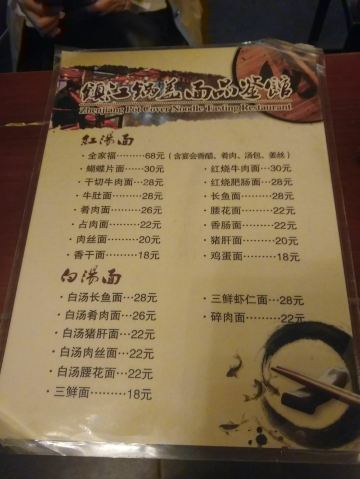 镇江锅盖面品鉴馆
Zhenjiang Pot Cover Noodle Tasting Restaurant
红汤面
·全家福………68元（含宴会香醋、肴肉、汤包、姜丝）
·蝴蝶片面……30元 ·红烧牛肉面…30元
·干切牛肉面…28元 ·红烧肥肠面…28元
·牛肚面………28元 ·长鱼面………28元
·肴肉面………26元 ·腰花面………22元
·占肉面………22元 ·香肠面………22元
·肉丝面………20元 ·猪肝面………20元
·香干面………18元 ·鸡蛋面………18元
白汤面
·白汤长鱼面…28元 ·三鲜虾仁面…28元
·白汤肴肉面…26元 ·碎肉面………22元
·白汤猪肝面…22元
·白汤肉丝面…22元
·白汤腰花面…22元
·三鲜面………18元